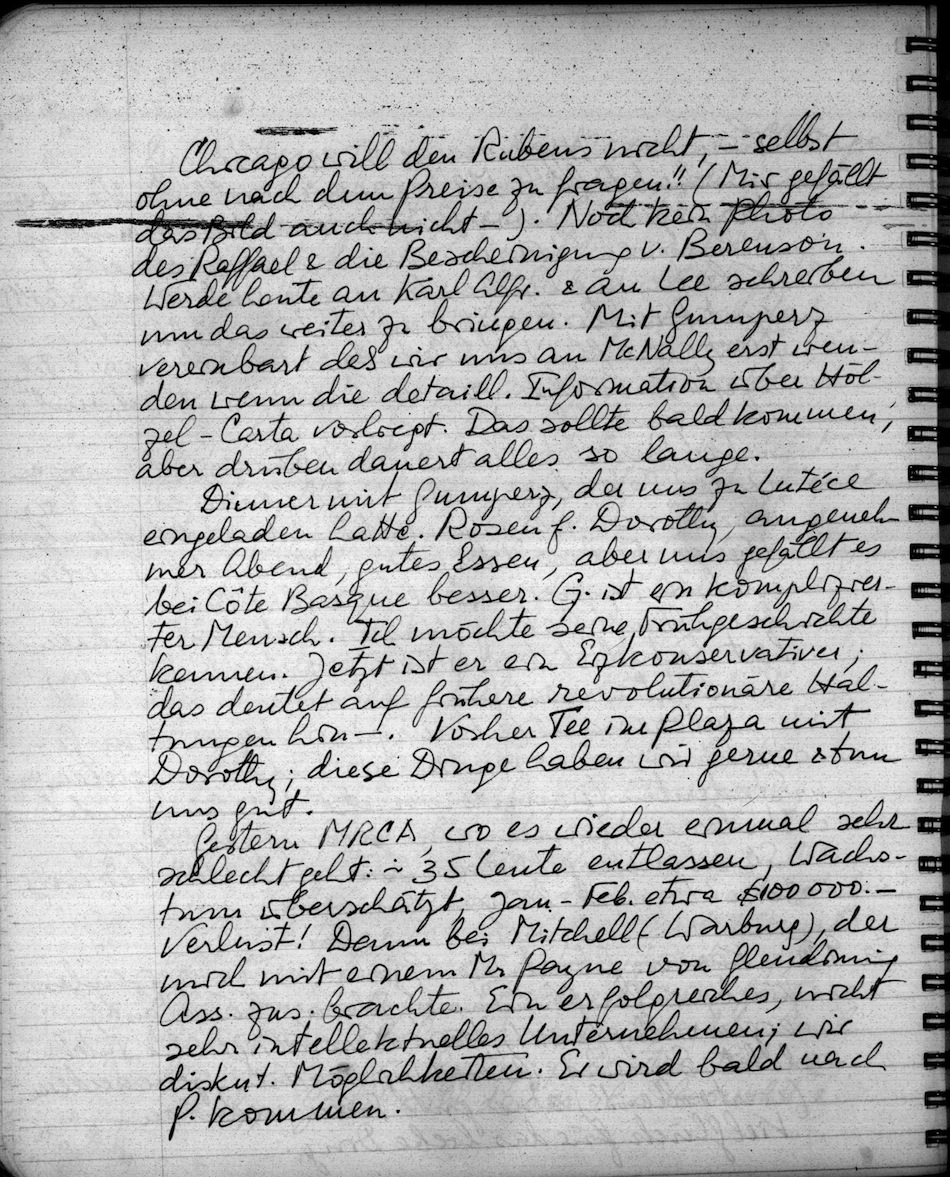 Chicago will den Rubens nicht, – selbst
ohne nach dem Preise zu fragen!! (Mir gefällt
das Bild auch nicht –). Noch kein Photo
des Raffael & die Bescheinigung v. Berenson.
Werde heute an Karl Alfr. & an Lee schreiben
um das weiter zu bringen. Mit Gumperz
vereinbart daß wir uns an McNally erst wen-
den wenn die detaill. Information über Höl-
zel-Carta vorliegt. Das sollte bald kommen,
aber drüben dauert alles so lange.
Dinner mit Gumperz, der uns zu Lutéce
eingeladen hatte. Rosen f. Dorothy, angeneh
mer Abend, gutes Essen, aber uns gefällt es
bei Côte Basque besser. G. ist ein komplizier-
ter Mensch. Ich möchte seine Frühgeschichte
kennen. Jetzt ist er ein Erzkonservativer;
das deutet auf frühere revolutionäre Hal-
tungen hin –. Vorher Tee im Plaza mit
Dorothy; diese Dinge haben wir gerne & tun
uns gut.
Gestern MRCA, wo es wieder einmal sehr
schlecht geht: ~ 35 Leute entlassen, Wachs-
tum überschätzt, Jan-Feb. etwa $100 000.–
Verlust! Dann bei Mitchell (Warburg), der
mich mit einem Mr Payne von Glendinning
Ass. zus. brachte. Ein erfolgreiches, nicht
sehr intellektuelles Unternehmen; wir
diskut. Möglichkeiten. Er wird bald nach
P. kommen.